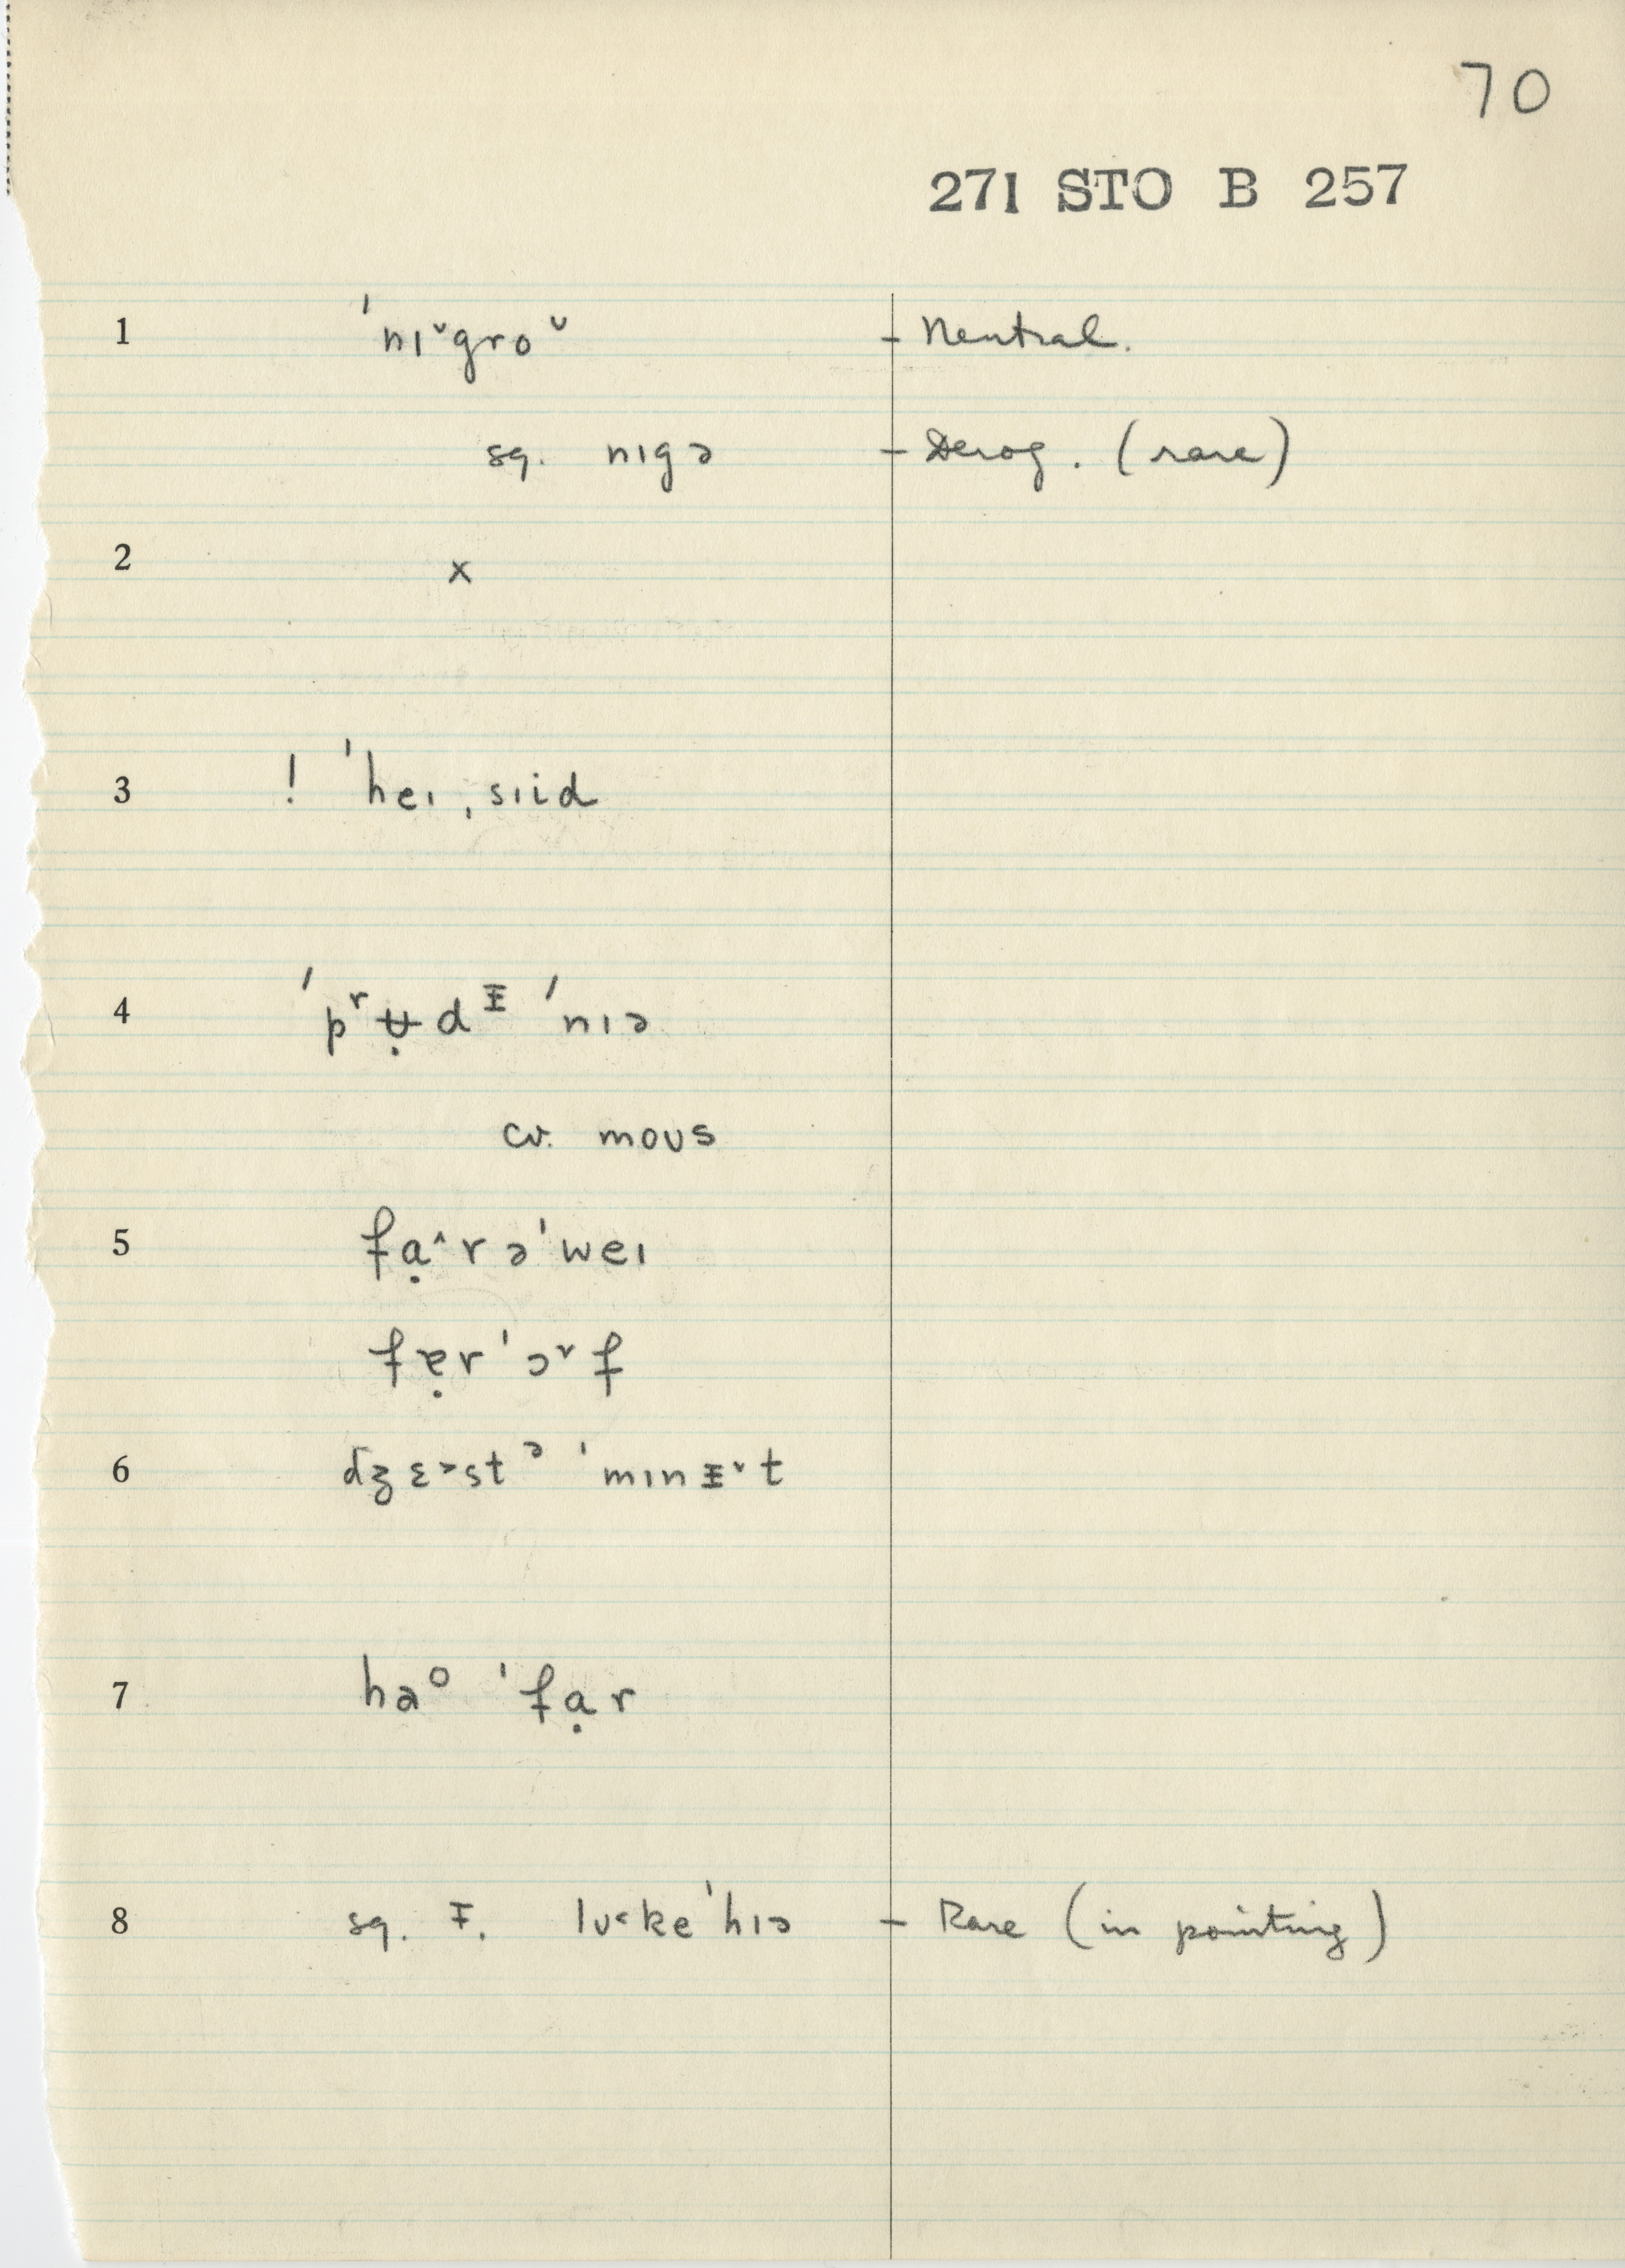 70
271 STO B 257
1 ˈnɪ˅groᶷ - Neutral.
sq. nɪgə - Derog. (rare)
2 x
3 ! ˈheɪ ˌsɪid
4 ˈpʳʉ̣dᵻ ˈnɪə
cv. moʊs
5 fạ^rəˈweɪ
fɐ̣rˈɔ˅f
6 dʒɛ˃stᵊ ˈmɪnᵻ˅t
7 haᵒ ˈfạr
8 sq. I. lʊ˂keˈhɪə - Rare (in pointing)